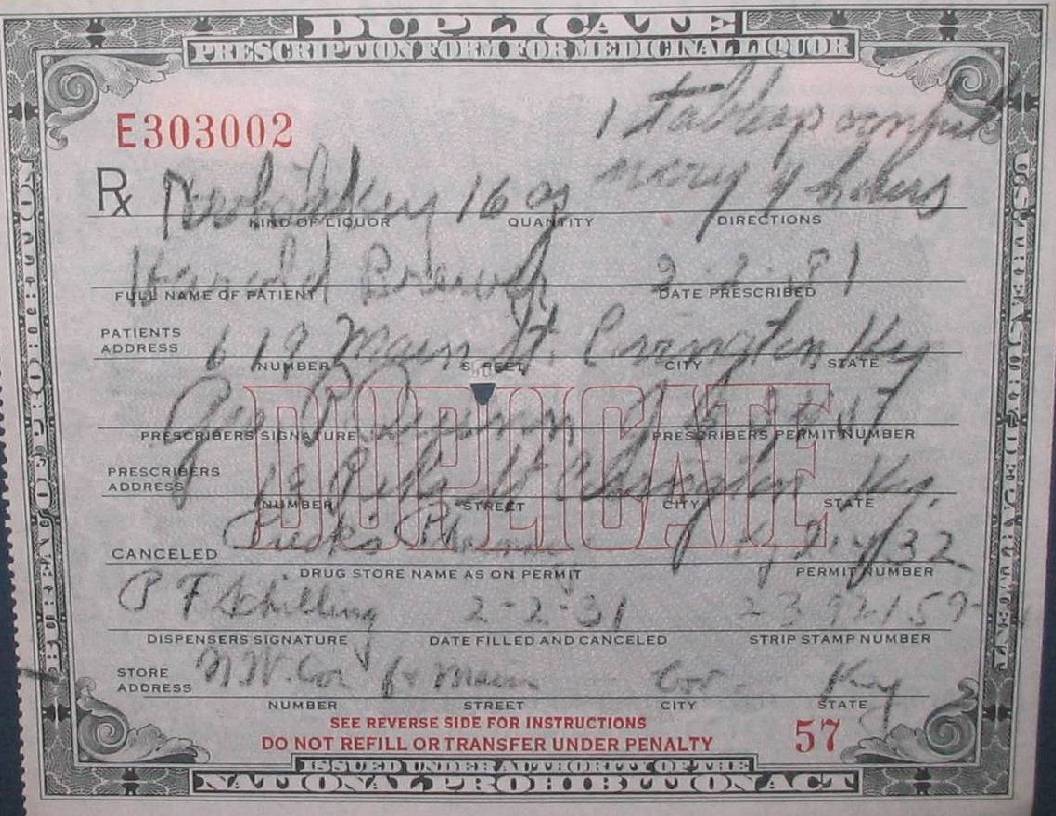 DUPLICATE
PRESCRIPTION FORM FOR MEDICINAL LIQUOR
E303002
1 tablespoonful
every 4 hours
Rx 16 oz
KIND OF LIQUOR QUANTITY DIRECTIONS
Harold
FULL NAME OF PATIENT DATE PRESCRIBED
PATIENTS ADDRESS 619 Main St. Covington Ky
NUMBER STREET CITY STATE
Geo P
DUPLICATE
PRESCRIBERS SIGNATURE PRESCRIBERS PERMIT NUMBER
PRESCRIBERS ADDRESS Pike St Covington Ky.
NUMBER STREET CITY STATE
CANCELED
DRUG STORE NAME AS ON PERMIT PERMIT NUMBER
P F Schilling 2-2-31
DISPENSERS SIGNATURE DATE FILLED AND CANCELED STRIP STAMP NUMBER
STORE ADDRESS N.W. Cor 6 & Main Cov. Ky
NUMBER STREET CITY STATE
SEE REVERSE SIDE FOR INSTRUCTIONS
DO NOT REFILL OR TRANSFER UNDER PENALTY 57
ISSUED UNDER AUTHORITY OF THE
NATIONAL PROHIBITION ACT
BUREAU OF PROHIBITION